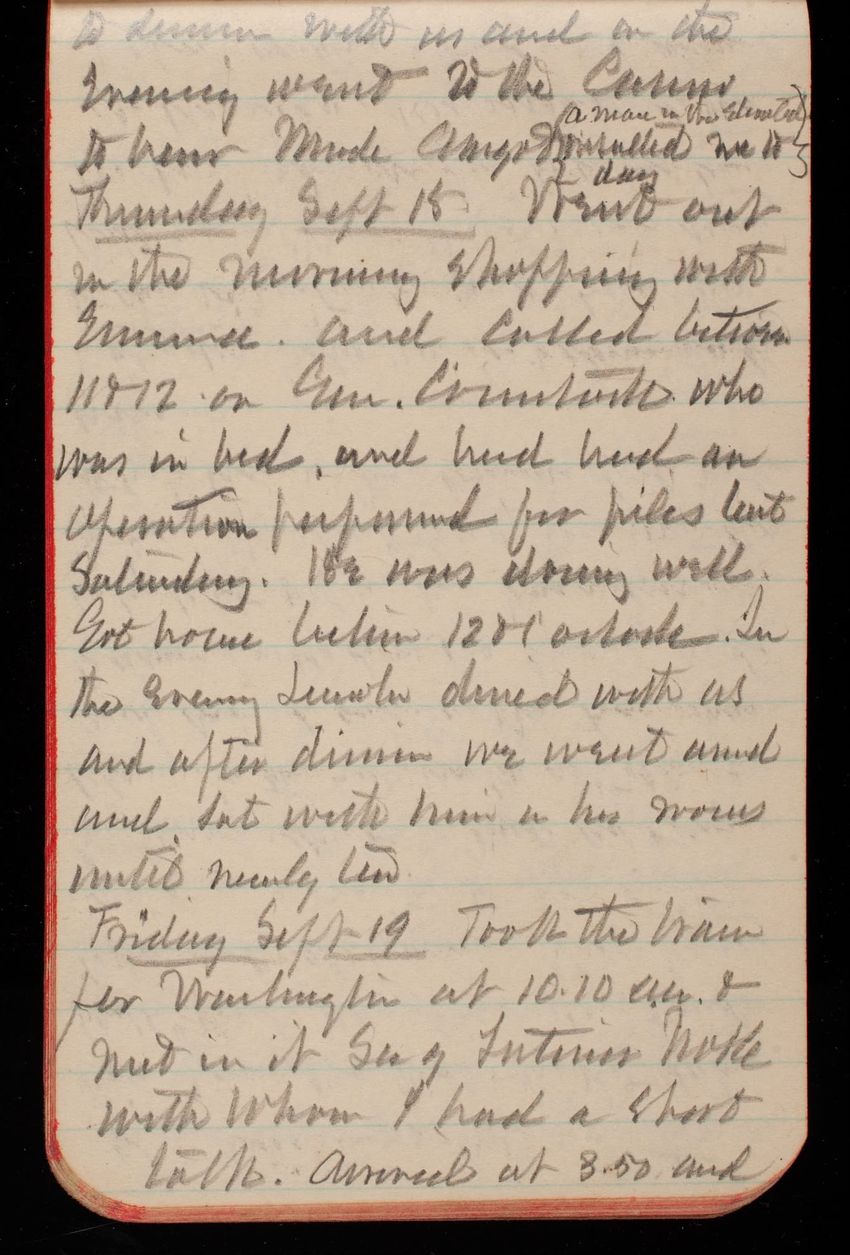 to dinner with us and in the
Evening went to the Casino
(a man in the Elevated
to hear Mme Angot insulted me to
day
Thursday Sept 18 Went out
in the morning shopping with
Emma. and called between
11 & 12 on Gen. Comstock who
was in bed, and had had an
operation performed for piles last
Saturday. He was doing well.
Got home between 12 & 1 oclock. In
the Evening Lincoln dined with us
and after dinner we went
and sat with him in his rooms
until nearly ten
Friday Sept 19 Took the train
for Washington at 10.10 a.m. &
met in it Secy Interior Noble
with whom I had a short
talk. Arrived at 3.50 and